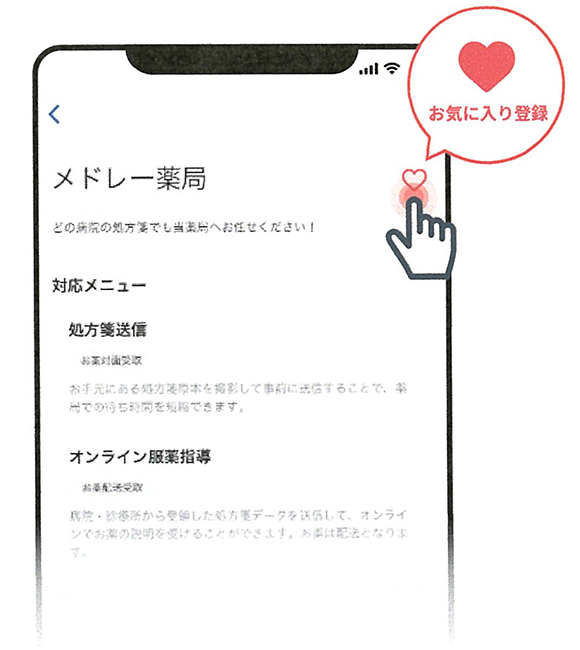 お気に入り登録
メドレー薬局
どの病院の処方箋でも当薬局へお任せください！
対応メニュー
処方箋送信
お薬対面受取
お手元にある処方箋原本を撮影して事前に送信することで、薬
局での待ち時間を短縮できます。
オンライン服薬指導
お薬配送受取
病院・診療所から受領した処方箋データを送信して、オンライ
ンでお薬の説明を受けることができます。お薬は配送となりま
す。